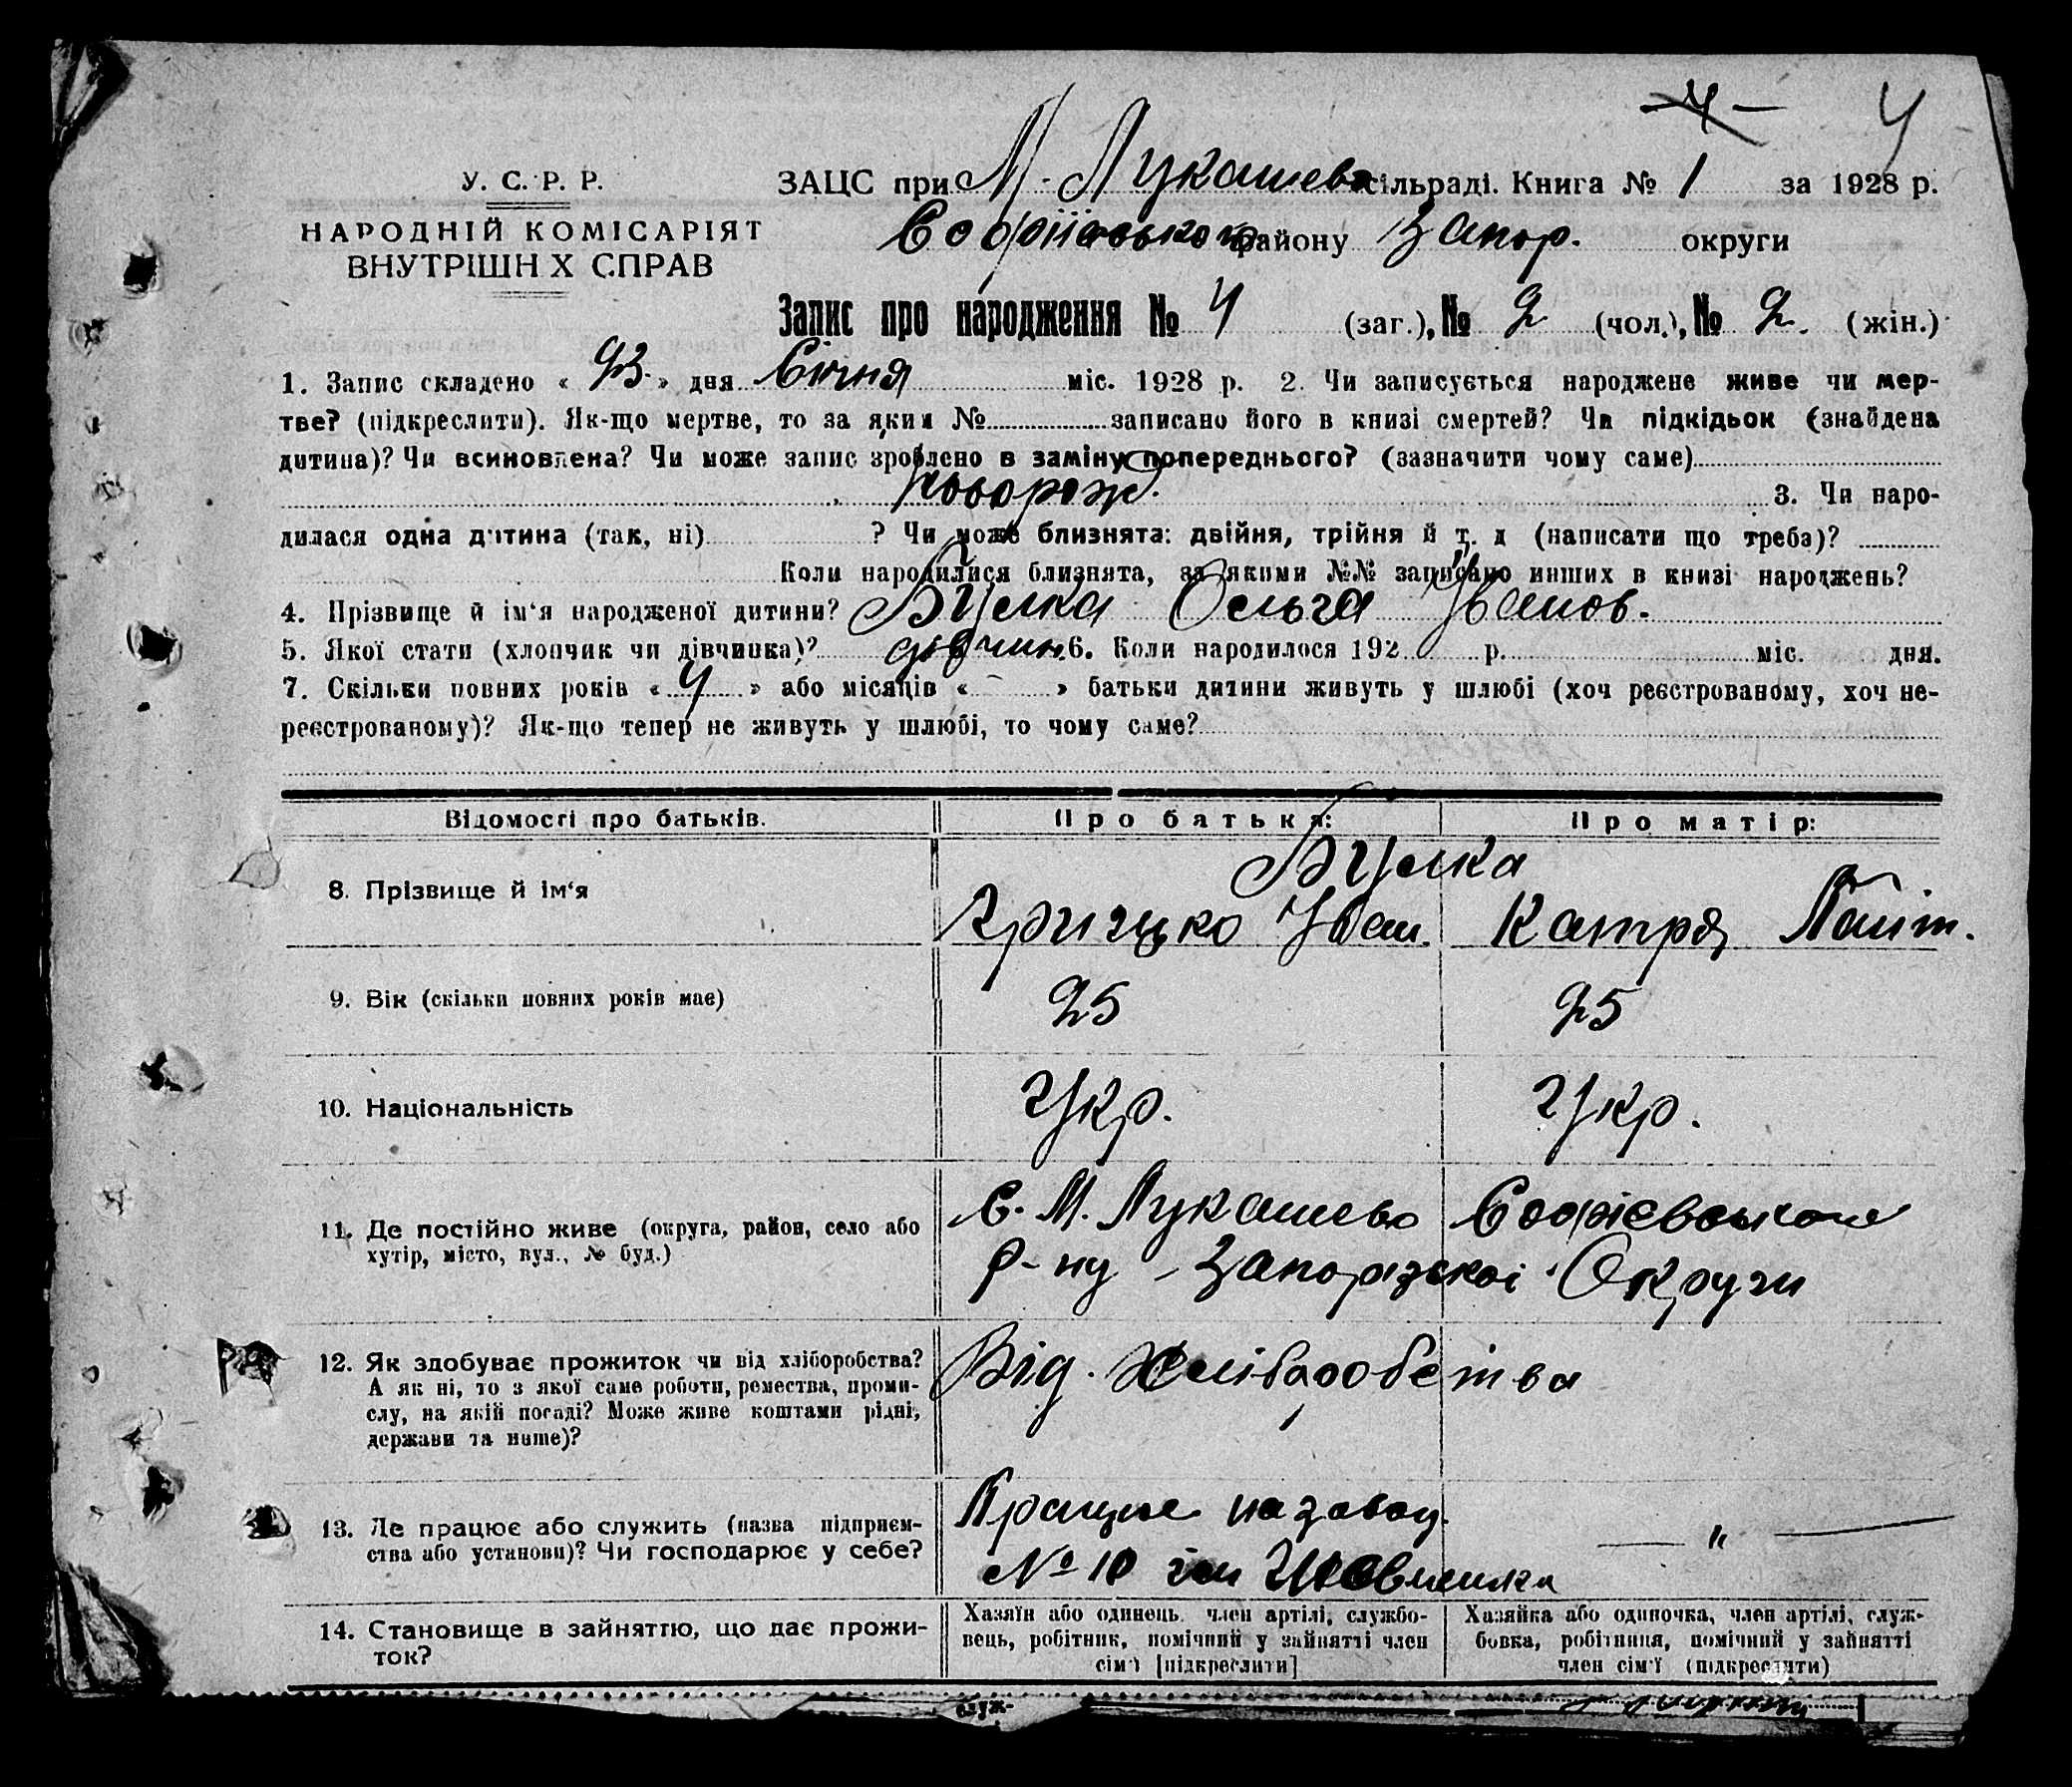 4 4
У. С. Р. Р.
НАРОДНІЙ КОМІСАРІЯТ
ВНУТРІШН Х СПРАВ
ЗАЦС при М. Лукашево сільраді. Книга № 1 за 1928 р.
Софіївського району Запор. округи
Запис про народження № 4 (заг.), № 2 (чол.), № 2. (жін.)
1. Запис складено « 23. » дня Січня міс. 1928 р. 2. Чи записується народжене живе чи мер-
тве? (підкреслити). Як-що мертве, то за яким № записано його в книзі смертей? Чи підкідьок (знайдена
дитина)? Чи всиновлена? Чи може запис зроблено в заміну попереднього? (зазначити чому саме)
Новорож. 3. Чи наро-
дилася одна дитина (так, ні) ? Чи може близнята: двійня, трійня й т. д (написати що треба)?
Коли народилися близнята, за якими №№ записано инших в книзі народжень?
4. Прізвище й ім‘я народженої дитини? Булка Ольга Іванов.
5. Якої стати (хлопчик чи дівчинка)? дівчин. 6. Коли народилося 192 р. міс. дня.
7. Скільки повних років « 4 » або місяців « - » батьки дитини живуть у шлюбі (хоч реєстрованому, хоч не-
реєстрованому)? Як-що тепер не живуть у шлюбі, то чому саме?
Відомості про батьків. Про батька: Про матір:
Булка
8. Прізвище й ім‘я Грицько Іван. Катря
9. Вік (скільки повних років має) 25 25
10. Національність Укр. Укр.
11. Де постійно живе (округа, район, село або С. М. Лукашево Софієвського
хутір, місто, вул., № буд.) р-ну - Запорізької Округи
12. Як здобуває прожиток чи від хліборобства? Від. Хліборобства
А як ні, то з якої саме роботи, ремества, проми-
слу, на якій посаді? Може живе коштами рідні,
держави та инше)?
13. Де працює або служить (назва підприєм- Працює на завод.
ства або установи)? Чи господарює у себе? № 10 ім Шевченка — " —
14. Становище в зайняттю, що дає прожи-
ток?
Хазяїн або одинець, член артілі, службо-
вець, робітник, помічний у зайнятті член
сім'ї [підкреслити]
Хазяйка або одиночка, член артілі, служ-
бовка, робітниця, помічний у зайнятті
член сім'ї (підкреслити)
служ-